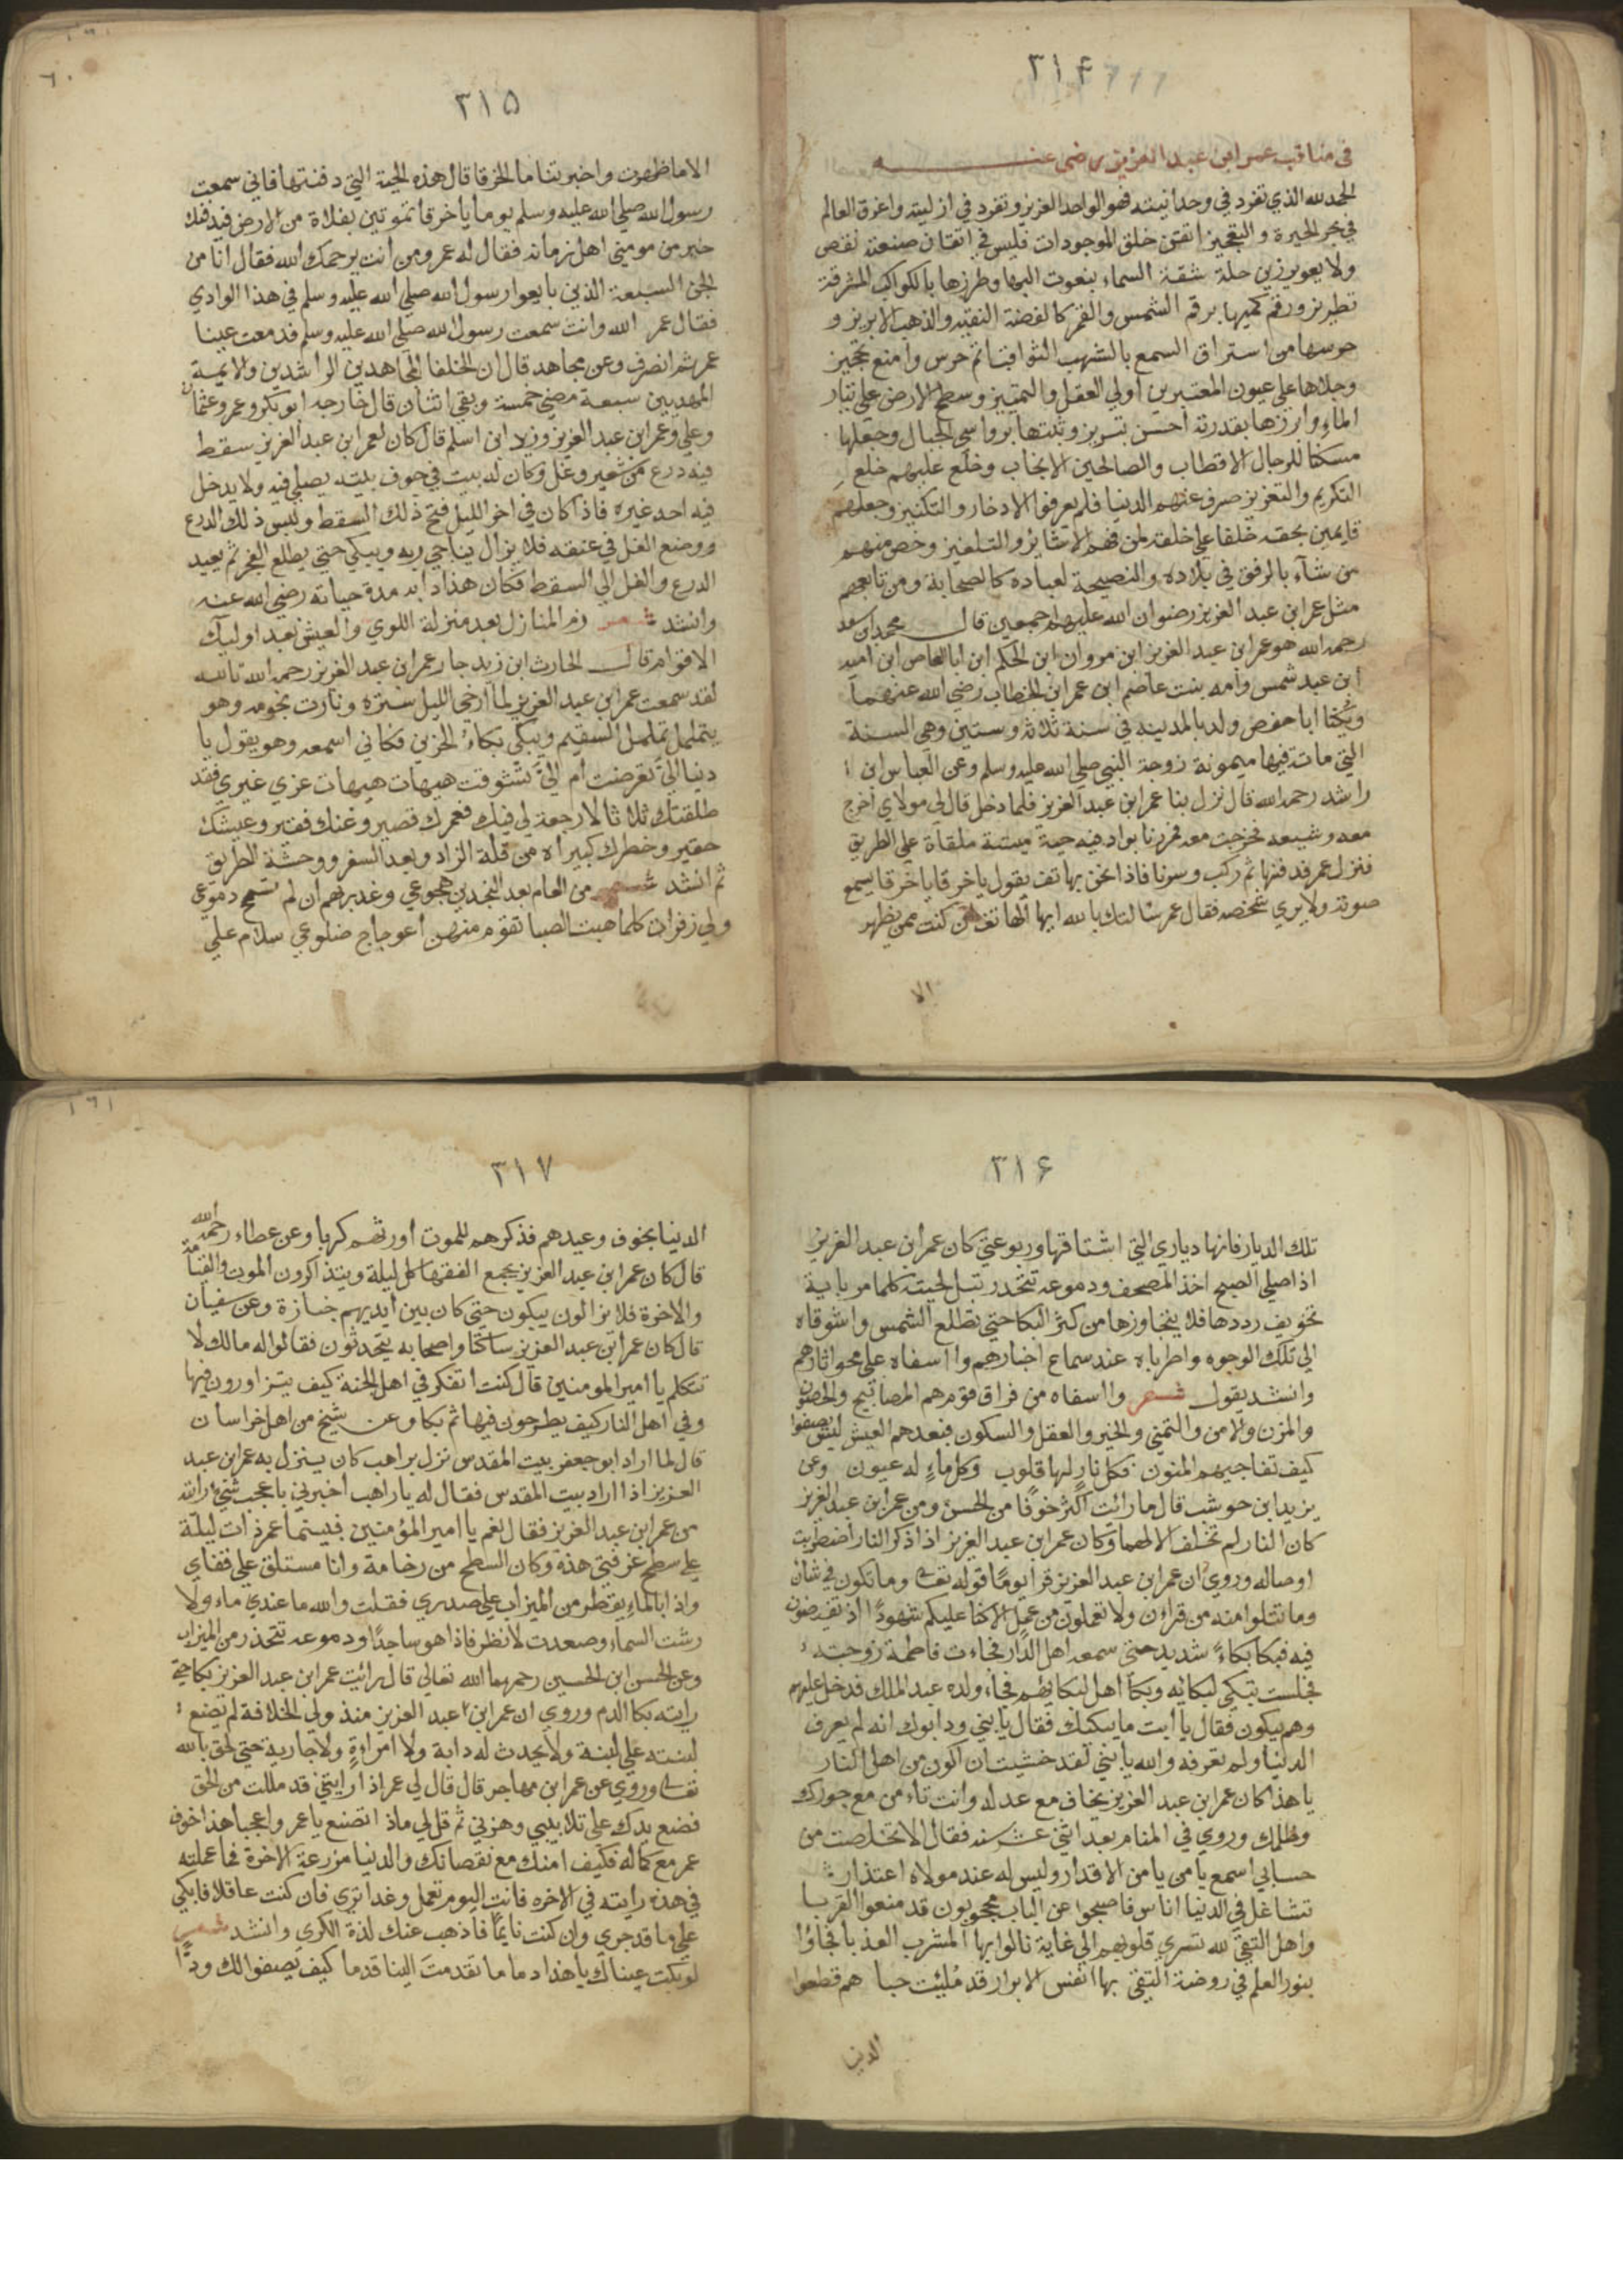 ٣١۴
في مناقب عمر ابن عبد العزيز رضي عنه
الحمد لله الذي تفرد في وحدانيته فهو الواحد العزيز وتفرد في ازليته واغرق العالم
في بحر الحيرة والتعجيز اتقن خلق الموجودات فليس في اتقان صنعته نقص
ولا يعويز زين حلة شقة السماء بنعوت البها وطرزها بالكواكب المشرقة
تطريز ورقم كميها برقم الشمس والقمر كالفضة النقيه والذهب الابريز و
حرسها من استراق السمع بالشهب الثواقب اتم حرس وامنع تحجيز
وجلاها علي عيون المعتبرين اولي العقل والتمييز وسطح الارض علي تيار
الماء وابرزها بقدرته احسن تبريز وثبتها برواسي الجبال وجعلها
مسكنا للرجال الاقطاب والصالحين الانجاب وخلع عليهم خلع
التكريم والتعزيز صرف عنهم الدنيا فلم يعرفوا الادخار والتكنيز وجعلهم
قايمين بحقه خلفا علي خلقه لمن فهم الاشاير والتلغيز وخص منهم
من شآء بالرفق في بلاده والنصيحة لعباده كالصحابة ومن تابعهم
مثل عمر ابن عبد العزيز رضوان الله عليهم اجمعين قال محمد ابن سعد
رحمه الله هو عمر ابن عبد العزيز ابن مروان ابن الحكم ابن ابا العاص ابن اميه
ابن عبد شمس وامه بنت عاصم ابن عمر ابن الخطاب رضي الله عنهما
ويكنا ابا حفص ولد بالمدينه في سنة ثلاثه وستين وهي السنة
التي ماتت فيها ميمونة زوجة النبي صلي الله عليه وسلم وعن العباس ابن
راشد رحمه الله قال نزل بنا عمر ابن عبد العزيز فلما دخل قال لي مولاي اخرج
معه وشيعه فخرجت معه فمررنا بواد فيه حية ميتة ملقاة علي الطريق
فنزل عمر فدفنها ثم ركب وسرنا فاذا نحن بهاتف يقول ياخرقا ياخرقا يسمع
صوته ولا يري شخصه فقال عمر سالتك بالله ايها الهاتف ان كنت ممن يظهر
الا
٣١٥
الا ما ظهرت واخبرتنا ما الخرقا قال هذه الحية التي دفنتها فاني سمعت
رسول الله صلي الله عليه وسلم يوما يا خرقا تموتين بفلاة من الارض فيدفنك
خير من مومني اهل زمانه فقال له عمر ومن انت يرحمك الله فقال انا من
الجن السبعة الذين بايعوا رسول الله صلي الله عليه وسلم في هذا الوادي
فقال عمر الله وانت سمعت رسول الله صلي الله عليه وسلم فدمعت عينا
عمر ثم انصرف وعن مجاهد قال ان الخلفا المجاهدين الراشدين والايمة
المهديين سبعة مضي خمسة وبقي اثنان قال خارجه ابو بكر وعمر وعثمان
وعلي وعمر ابن عبد العزيز وزيد ابن اسلم قال كان لعمر ابن عبد العزيز سقط
فيه درع من شعير وغل وكان له بيت في جوف بيته يصلي فيه ولا يدخل
فيه احد غيره فاذا كان في اخر الليل فتح ذلك السقط ولبس ذلك الدرع
ووضع الغل في عنقه فلا يزال يناجي ربه ويبكي حتي يطلع الفجر ثم يعيد
الدرع والغل الي السقط فكان هذا دابه مدة حياته رضي الله عنه
وانشد شعر ذم المنازل بعد منزلة اللوي والعيش بعد اوليك
الاقوام قال الحارث ابن زيد جار عمر ابن عبد العزيز رحمه الله تالله
لقد سمعت عمر ابن عبد العزيز لما ارخي الليل ستره ونارت نجومه وهو
يتململ تململ السقيم ويبكي بكاء الحزين فكاني اسمعه وهو يقول يا
دنيا الي تعرضت ام الي تشوقت هيهات هيهات غري غيري فقد
طلقتك ثلاثا لا رجعة لي فيك فعمرك قصير وغنك فقير وعيشك
حقير وخطرك كبير اه من قلة الزاد وبعد السفر ووحشة الطريق
ثم انشد شعر من العام بعد النجدين هجوعي وغدبرهم ان لم تسمح دموعي
ولي زفرات كلما هبت الصبا تقوم منهن اعوجاج ضلوعي سلام علي
٣١۶
تلك الديار فانها دياري التي اشتاقها وربوعتي كان عمر ابن عبد العزيز
اذا صلي الصبح اخذ المصحف ودموعه تتحدر تبل لحيته كلما مر باية
تخويف رددها فلا يتجاوزها من كثر البكا حتي تطلع الشمس واشوقاه
الي تلك الوجوه واطرباه عند سماع اخبارهم وااسفاه علي محو اثارهم
وانشد يقول شعر وااسفاه من فراق قوم هم المصابيح والحصون
والمزن والامن والتمني والخير والعقل والسكون فبعدهم العيش ليس يصفوا
كيف تفاجيهم المنون فكل نار لها قلوب وكل ماء له عيون وعن
يزيد ابن حوشب قال ما رائت اكثر خوفا من الحسن ومن عمر ابن عبد العزيز
كان النار لم تخلف الا لهما وكان عمر ابن عبد العزيز اذا ذكر النار اضطربت
اوصاله وروي ان عمر ابن عبد العزيز قرا يوما قوله تعالي وما تكون في شان
وما تتلوا منه من قراءن ولا تعملون من عمل الا كنا عليكم شهودا اذ تفيضون
فيه فبكا بكاء شديد حتي سمعه اهل الدار فجاءت فاطمة زوجته
فجلست تبكي لبكائه وبكا اهل لبكايهم فجاء ولده عبد الملك فدخل عليهم
وهم يبكون فقال يا ابت ما يبكيك فقال يا بني ود ابوك انه لم يعرف
الدنيا ولم تعرفه والله يا بني لقد خشيت ان اكون من اهل النار
يا هذا كان عمر ابن عبد العزيز يخاف مع عدله وانت تاءمن مع جورك
وظلمك وروي في المنام بعد اثني عشر سنه فقال الا تخلصت من
حسابي اسمع يا من يامن الاقدار وليس له عند مولاه اعتذار
تشاغل في الدنيا اناس فاصبحوا عن الباب محجوبون قد منعوا القربا
واهل التقي لله تسري قلوبهم الي غاية نالوا بها المشرب العذبا فجاؤا
بنور العلم في روضة التقي بها انفس الابرار قد مليئت حبا هم قطعوا
الدنيا
٣١٧
الدنيا بخوف وعيدهم فذكرهم للموت اورثهم كربا وعن عطاء رحمه الله
قال كان عمر ابن عبد العزيز يجمع الفقها كل ليلة ويتذاكرون الموت والقيامة
والاخرة فلا يزالون يبكون حتي كان بين ايديهم جنازة وعن سفيان
قال كان عمر ابن عبد العزيز ساكتا واصحابه يتحدثون فقالوا له مالك لا
تتكلم يا امير المومنين قال كنت اتفكر في اهل الجنة كيف يتزاورون فيها
وفي اهل النار كيف يطرحون فيها ثم بكا وعن شيخ من اهل خراسان
قال لما اراد ابو جعفر بيت المقدس نزل براهب كان ينزل به عمر ابن عبد
العزيز اذا اراد بيت المقدس فقال له يا راهب اخبرني باعجب شيء رايته
من عمر ابن عبد العزيز فقال نعم يا امير المؤمنين فبينما عمر ذات ليلة
علي سطح غرفتي هذه وكان السطح من رخامة وانا مستلق علي قفاي
واذا بالماء يقطر من الميزاب علي صدري فقلت والله ما عندي ماء ولا
رشت السماء وصعدت لانظر فاذا هو ساجدا ودموعه تتحدر من الميزاب
وعن الحسن ابن الحسين رحمهما الله تعالي قال رائيت عمر ابن عبد العزيز بكا حتي
رايته بكا الدم وروي ان عمر ابن عبد العزيز منذ ولي الخلافة لم يضع
لبنته علي لبنة ولا يحدث له دابة ولا امراءة ولا جارية حتي لحق بالله
تعالي وروي عن عمر ابن مهاجر قال قال لي عمر اذا رايتني قد مللت من الحق
فضع يدك علي تلابيبي وهزني ثم قل لي ماذا تصنع يا عمر واعجبا هذا خوف
عمر مع كماله فكيف امنك مع نقصانك والدنيا مزرعة الاخرة فما عملته
في هذه رايته في الاخره فانت اليوم تعمل وغدا تري فان كنت عاقلا فابكي
علي ما قد جري وان كنت نايما فاذهب عنك لذة الكري وانشد شعر
لو بكت عيناك يا هذا دما ما تقدمت الينا قدما كيف يصفوا لك ودا